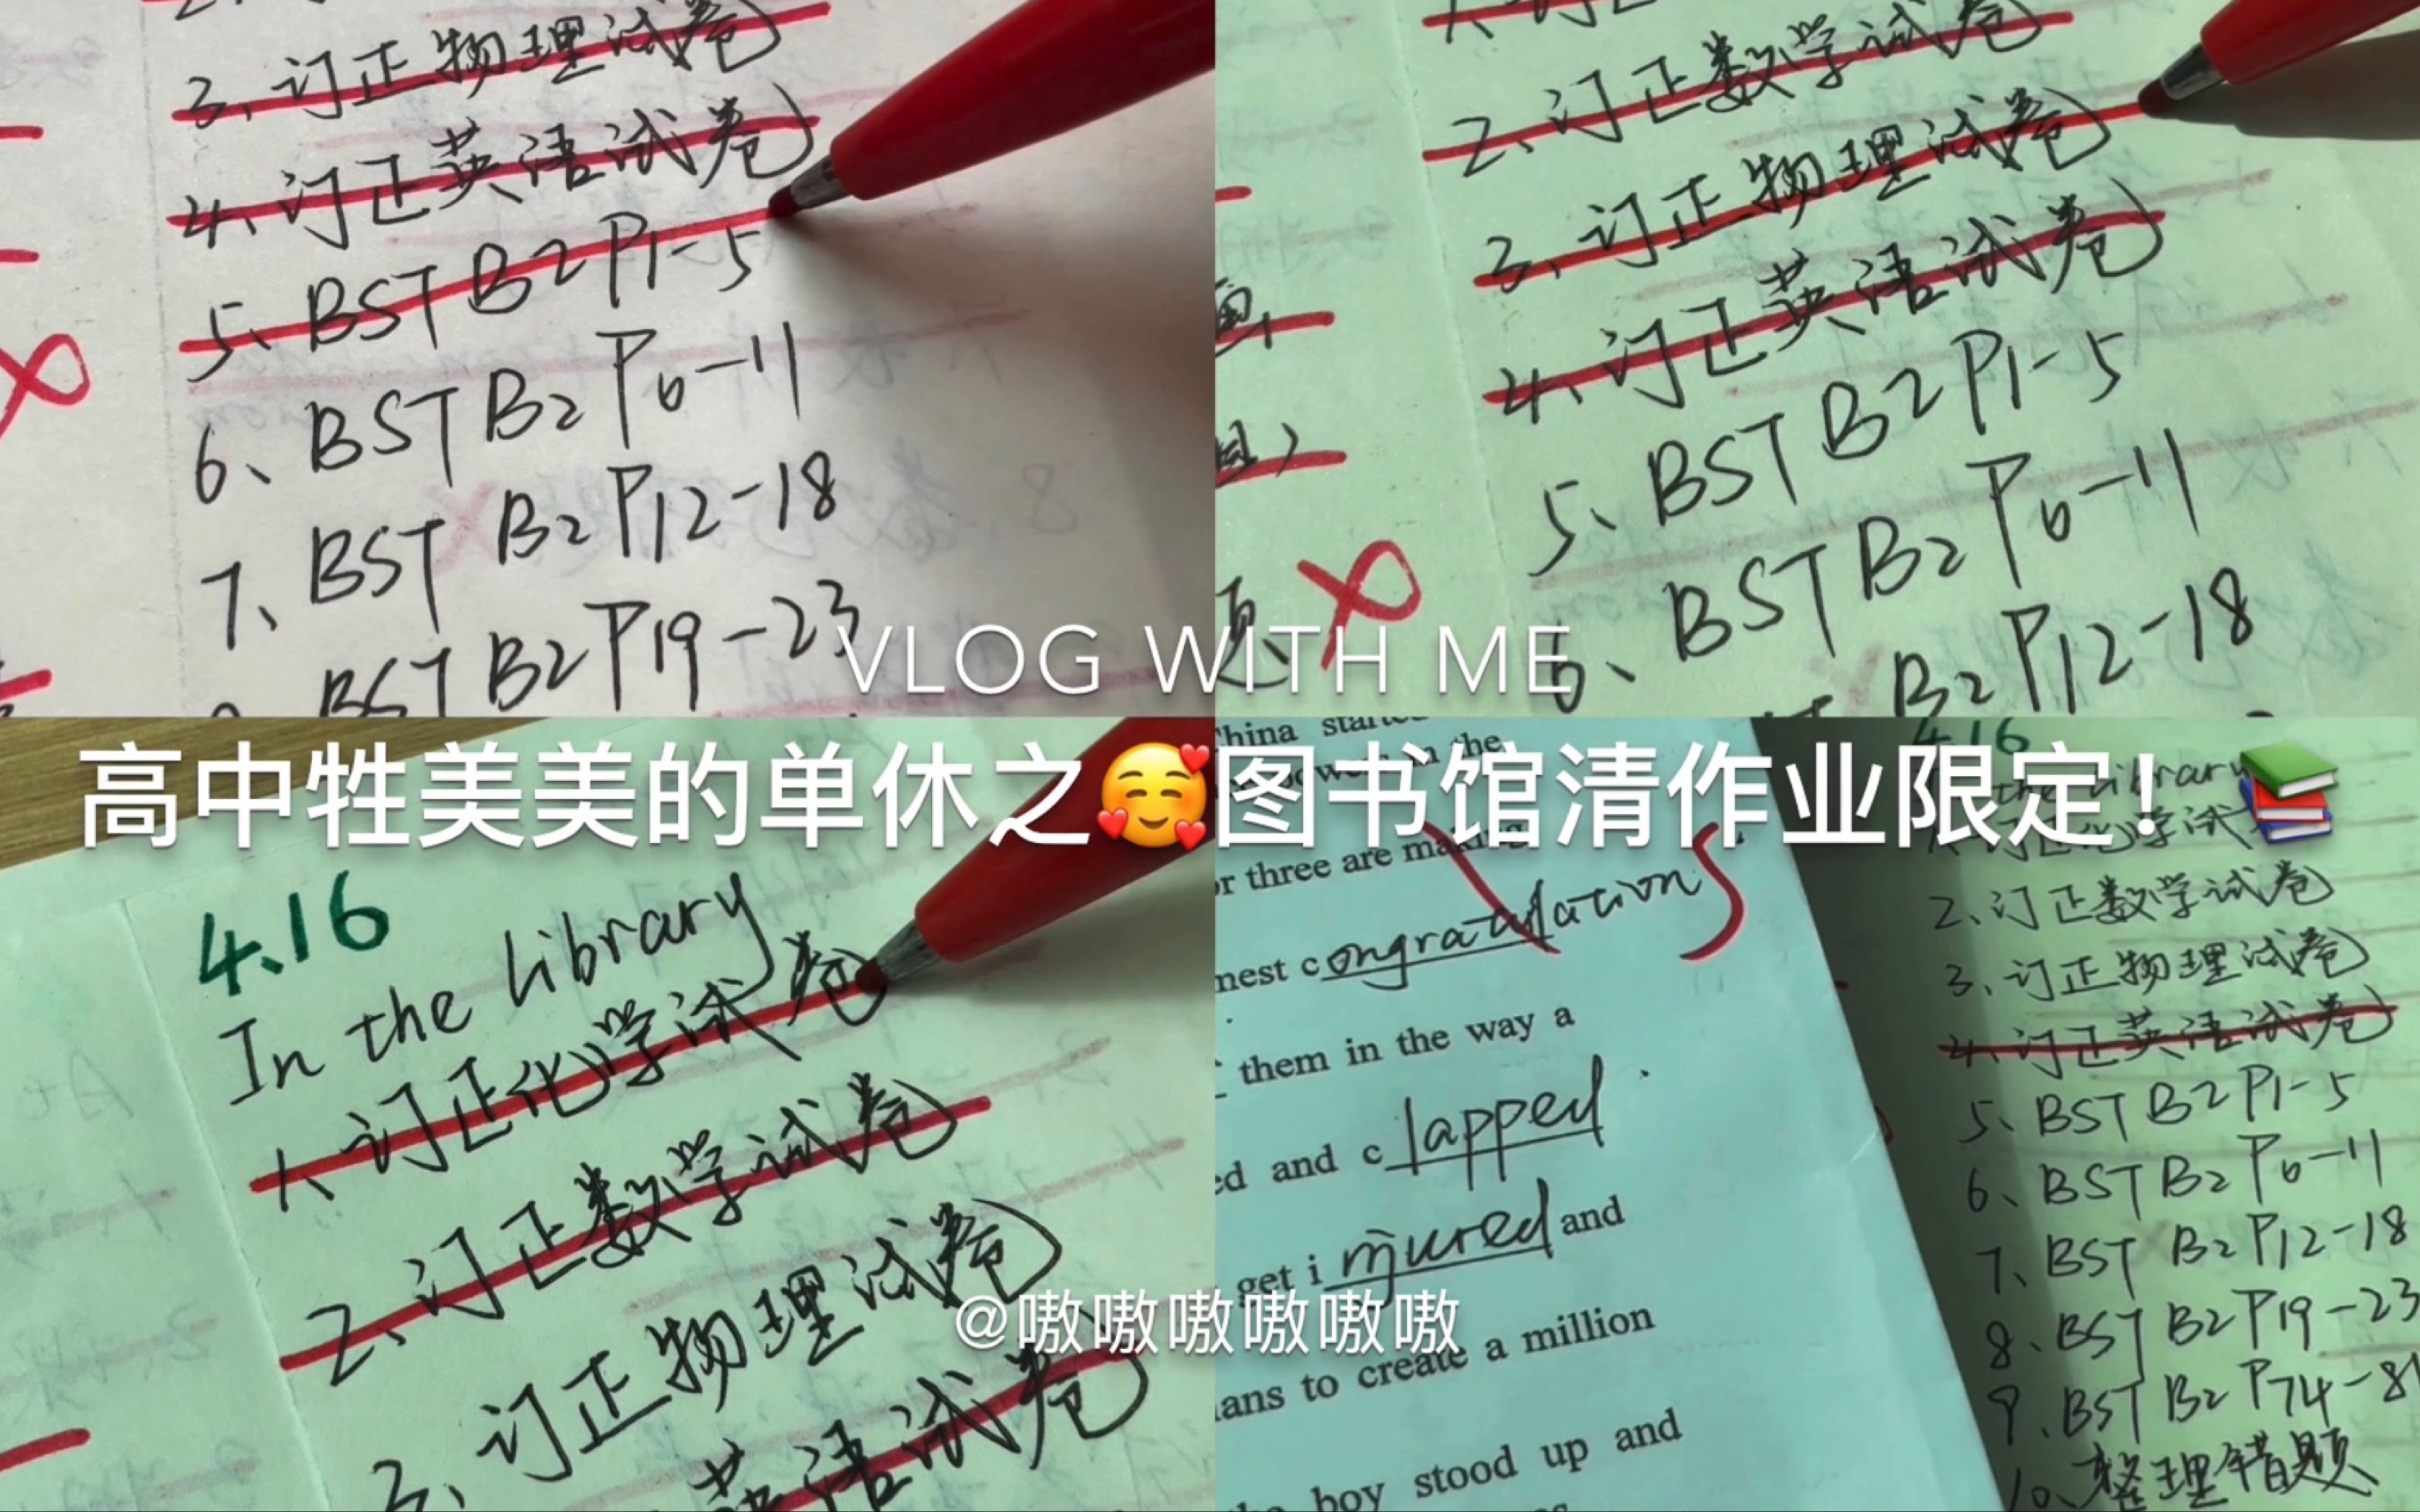 3、订正物理试卷
4、订正英语试卷
5、BST B2 P1-5
6、BST B2 P6-11
7、BST B2 P12-18
BST B2 P19-23
2、订正数学试卷
3、订正物理试卷
4、订正英语试卷
5、BST B2 P1-5
6、BST B2 P6-11
B2 P12-18
题
VLOG WITH ME
高中牲美美的单休之🥰图书馆清作业限定！📚
4.16
In the library
1、订正化学试卷
2、订正数学试卷
3、订正物理试卷
英语试卷
China
in the
or three are making
congratulations
them in the way a
ed and clapped
get injured and
ans to create a million
boy stood up and
4.16
the library
1、订正化学试
2、订正数学试卷
3、订正物理试卷
4、订正英语试卷
5、BST B2 P1-5
6、BST B2 P6-11
7、BST B2 P12-18
8、BST B2 P19-23
9、BST B2 P74-81
10、整理错题
@嗷嗷嗷嗷嗷嗷